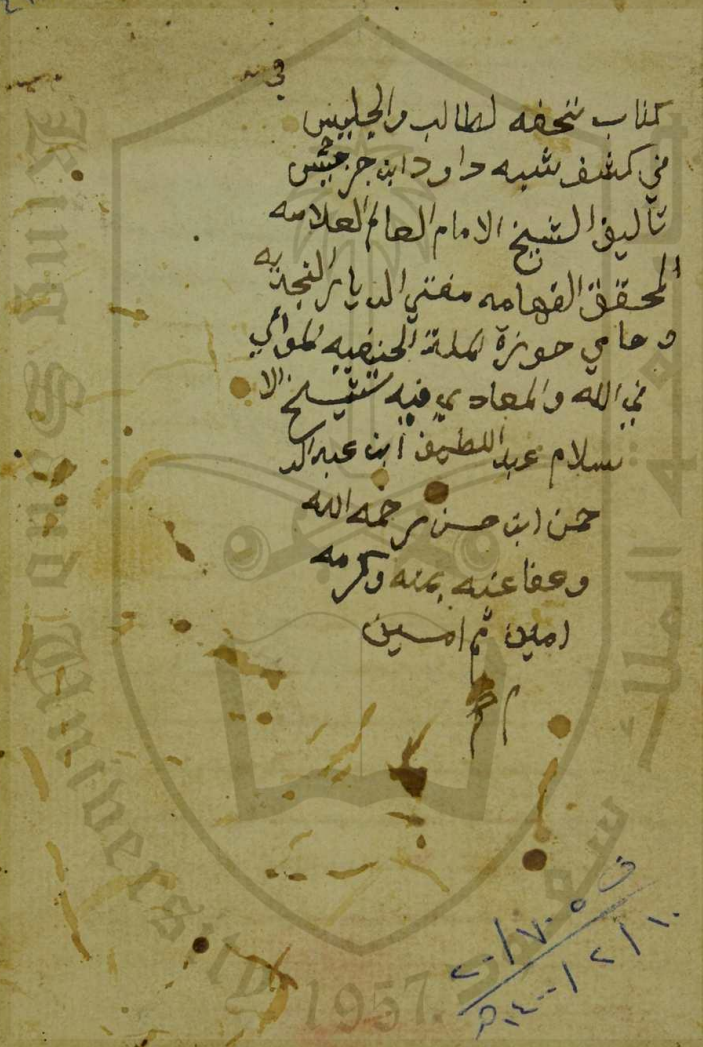 كتاب تحفه لطالب والجليس
في كشف شبه داود ابن جرجيس
تأليف الشيخ الامام العالم العلامه
المحقق الفهامه مفتي الديار النجديه
وحامي حوزة لملة الحنيفيه لموالي
في الله والمعادي فيه شيخ الا
سلام عبد اللطيف ابن عبد الر
حمن ابن حسن رحمه الله
وعفا عنه بمنه وكرمه
امين ثم امين
م م
ف ٧٠٥ / ٢٠
١٠ / ٢ / ١٤٠٠ هـ
King Saud University
1957
جامعة الملك سعود